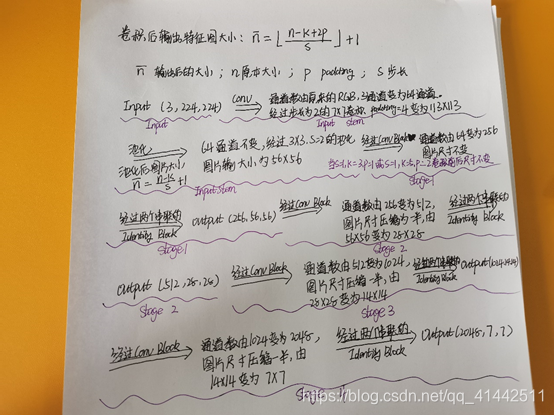 卷积后输出特征图大小: n̄ = ⌊(n-k+2p)/s⌋+1
n̄ 输出后的大小; n原本大小; p padding; s 步长
Input (3,224,224) conv 通道数由原来的RGB,3通道变为64通道。
经过步长为2的7×7卷积. padding=4变为113×113
Input Input stem
池化 64通道不变, 经过3×3.s=2的池化 经过Conv Block 通道数由64变为256
池化后图片大小 图片缩小为56×56 图片尺寸不变
n̄ = (n-k)/s +1 当s=1,k=3,p=1或s=1,k=5,p=2卷积前后尺寸不变
Input stem stage1
经过两个串联的 output (256,56,56) 经过Conv Block 通道数由256变为512, 经过两个串联的
Identity Block 图片尺寸压缩为一半,由 Identity Block
56×56变为28×28
Stage1 Stage 2
output (512,28,28) 经过Conv Block 通道数由512变为1024, 经过两个串联的 output
图片尺寸压缩一半,由 Identity Block
28×28变为14×14
Stage 2 Stage 3
经过Conv Block 通道数由1024变为2048, 经过两个串联的 output(2048,7,7)
图片尺寸压缩一半,由 Identity Block
14×14变为7×7
https://blog.csdn.net/qq_41442511